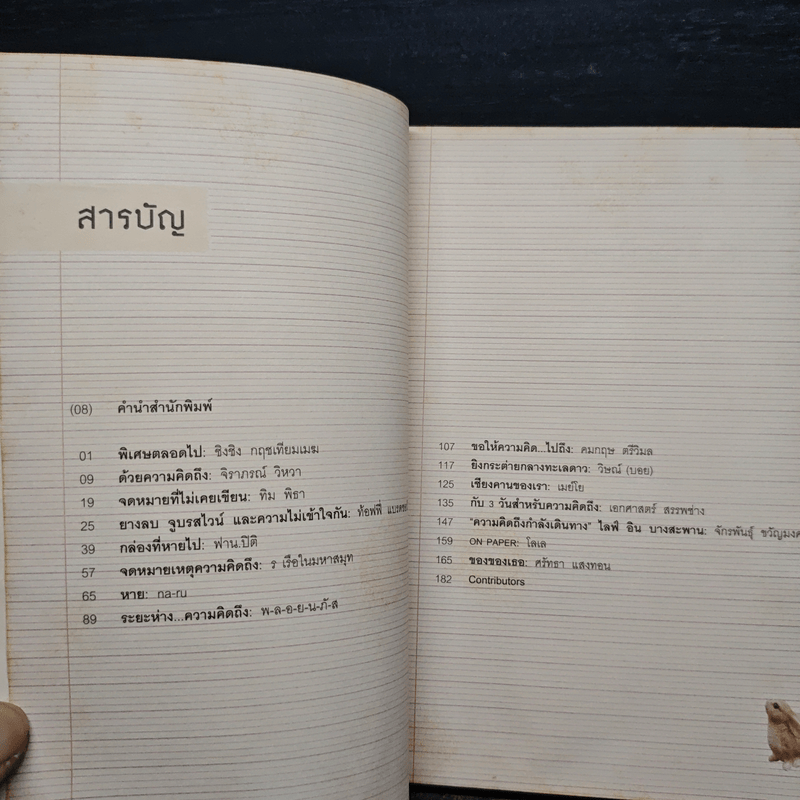 สารบัญ
(08) คำนำสำนักพิมพ์
01 พิเศษตลอดไป: ชิงชิง กฤชเทียมเมฆ
09 ด้วยความคิดถึง: จิราภรณ์ วิหวา
19 จดหมายที่ไม่เคยเขียน: ทิม พิธา
25 ยางลบ จูบรสไวน์ และความไม่เข้าใจกัน: ท้อฟฟี่
39 กล่องที่หายไป: ฟาน.ปิติ
57 จดหมายเหตุความคิดถึง: ร เรือในมหาสมุท
65 หาย: na-ru
89 ระยะห่าง...ความคิดถึง: พ-ล-อ-ย-น-ภั-ส
107 ขอให้ความคิด...ไปถึง: คมกฤษ ตรีวิมล
117 ยิงกระต่ายกลางทะเลดาว: วิษณ์ (บอย)
125 เชียงคานของเรา: เมย์โย
135 กับ 3 วันสำหรับความคิดถึง: เอกศาสตร์ สรรพช่าง
147 "ความคิดถึงกำลังเดินทาง" ไลฟ์ อิน บางสะพาน: จักรพันธุ์
159 ON PAPER: โลเล
165 ของของเธอ: ศรัทธา แสงทอน
182 Contributors